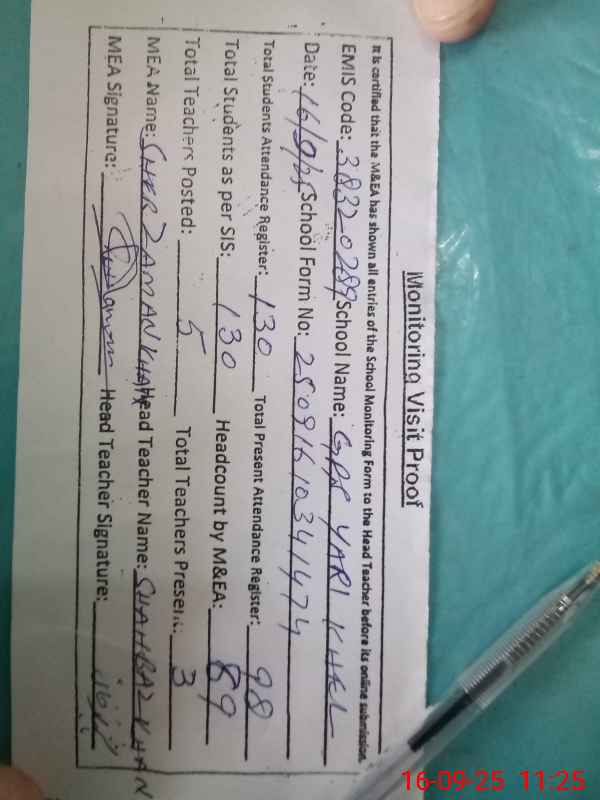 Monitoring Visit Proof
It is certified that the M&EA has shown all entries of the School Monitoring Form to the Head Teacher before its online submission.
EMIS Code: 38320289 School Name: GPS YARI KHEL
Date: 16/9/25 School Form No: 25091610341474
Total Students Attendance Register: 130 Total Present Attendance Register: 98
Total Students as per SIS: 130 Headcount by M&EA: 89
Total Teachers Posted: 5 Total Teachers Present: 3
MEA Name: SHER ZAMAN KHAN Head Teacher Name: SHAHBAZ KHAN
MEA Signature: Head Teacher Signature:
16-09-25 11:25